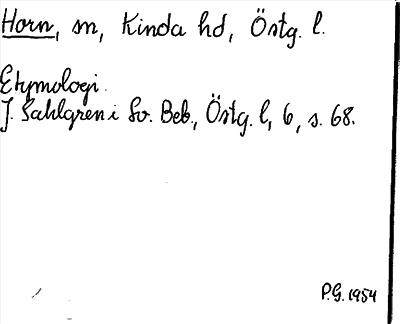 Horn, sn, Kinda hd, Östg. l.
Etymologi.
J. Sahlgren i Sv. Beb., Östg. l, 6, s. 68.
P.G. 1954